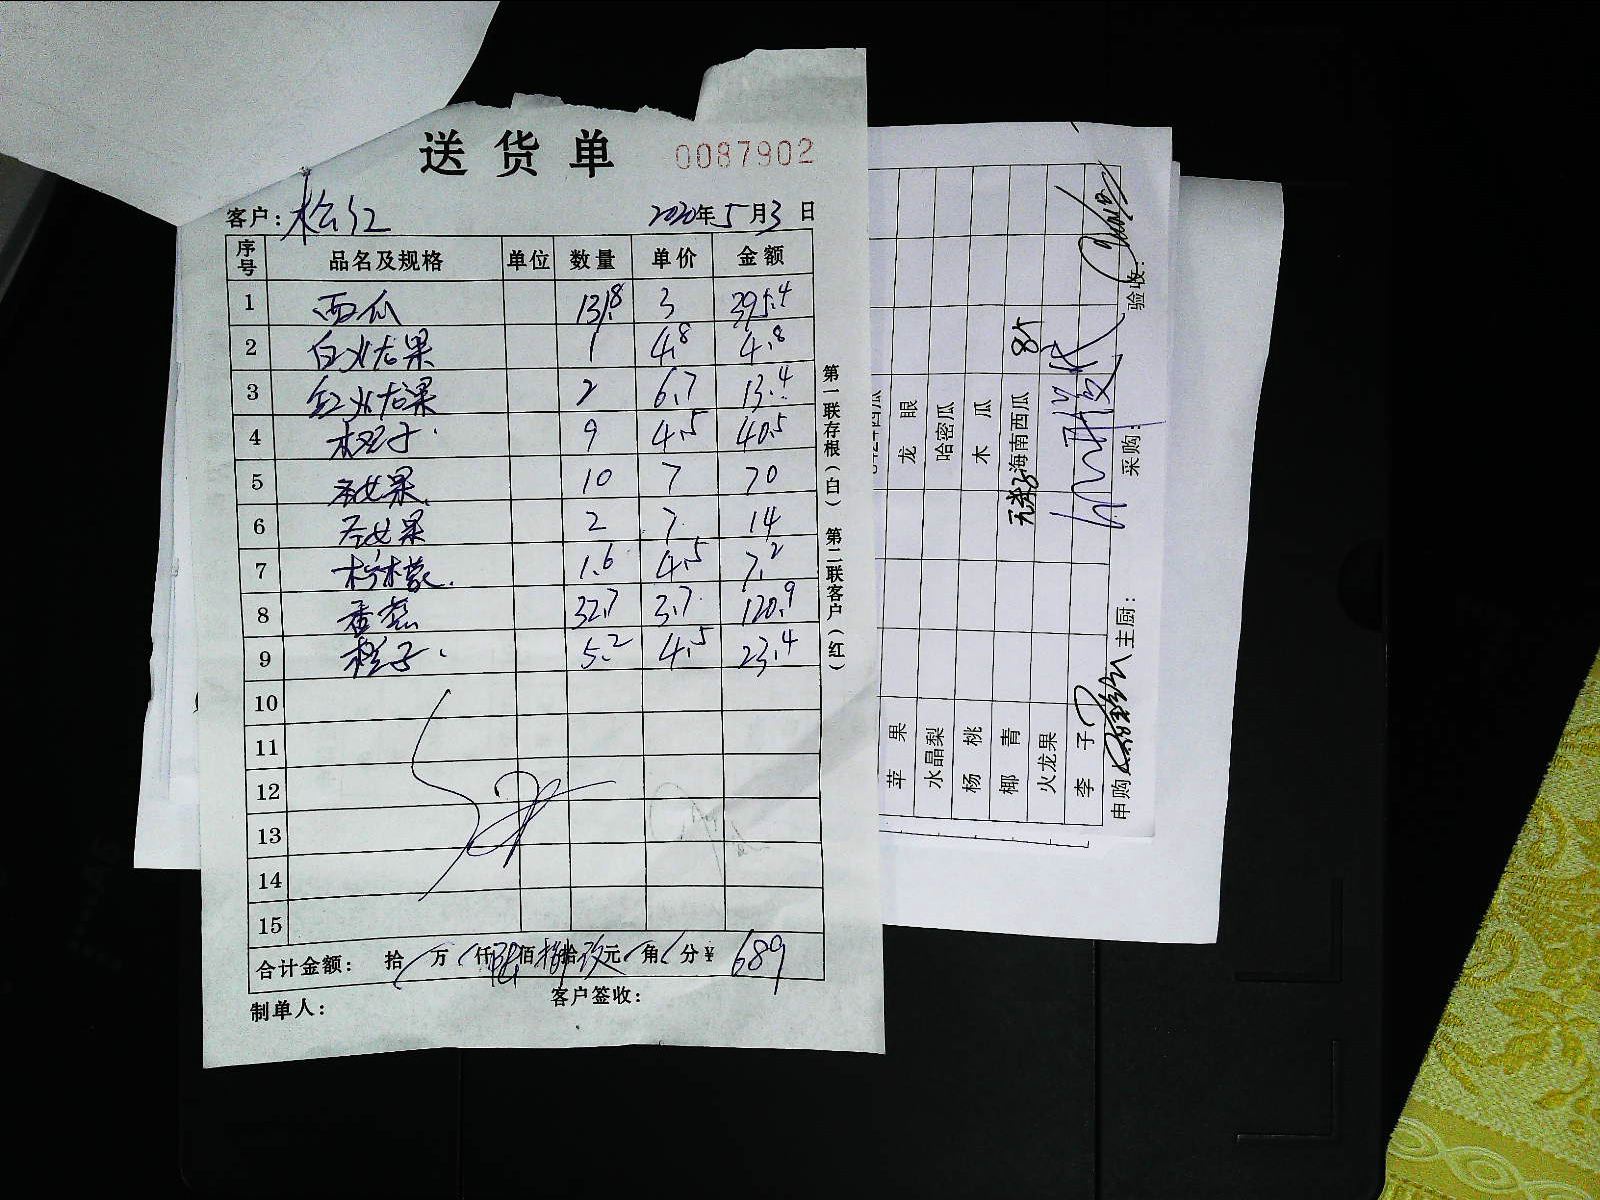 送货单 0087902
客户: 松江 2020年5月3日
序号 品名及规格 单位 数量 单价 金额
1 西瓜 131.8 3 395.4
2 白火龙果 1 4.8 4.8
3 红火龙果 2 6.7 13.4
4 橙子 9 4.5 40.5
5 圣女果 10 7 70
6 圣女果 2 7 14
7 柠檬 1.6 4.5 7.2
8 香蕉 32.7 3.7 120.9
9 橙子 5.2 4.5 23.4
10
11
12
13
14
15
合计金额: 拾 万 仟 陆佰捌拾玖元 角 分 ¥ 689
制单人: 客户签收:
第一联存根(白) 第二联客户(红)
苹果
水晶梨 龙眼
杨桃 哈密瓜
椰青 木瓜
火龙果 无籽海南西瓜 85
李子
申购 主厨: 采购: 验收: